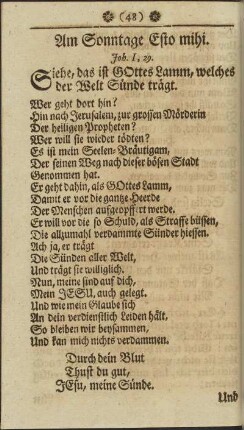 (48)
Am Sonntage Esto mihi.
Joh. I, 29.
Siehe, das ist GOttes Lamm, welches
der Welt Sünde trägt.
Wer geht dort hin?
Hin nach Jerusalem, zur grossen Mörderin
Der heiligen Propheten?
Wer will sie wieder tödten?
Es ist mein Seelen-Bräutigam,
Der seinen Weg nach dieser bösen Stadt
Genommen hat.
Er geht dahin, als GOttes Lamm,
Damit er vor die gantze Heerde
Der Menschen aufgeopffert werde.
Er will vor die so Schuld, als Straffe büssen,
Die allzumahl verdammte Sünder hiessen.
Ach ja, er trägt
Die Sünden aller Welt,
Und trägt sie williglich.
Nun, meine sind auf dich,
Mein JESU, auch gelegt.
Und wie mein Glaube sich
An dein verdienstlich Leiden hält.
So bleiben wir beysammen,
Und kan mich nichts verdammen.
Durch dein Blut
Thust du gut,
JEsu, meine Sünde.
Und